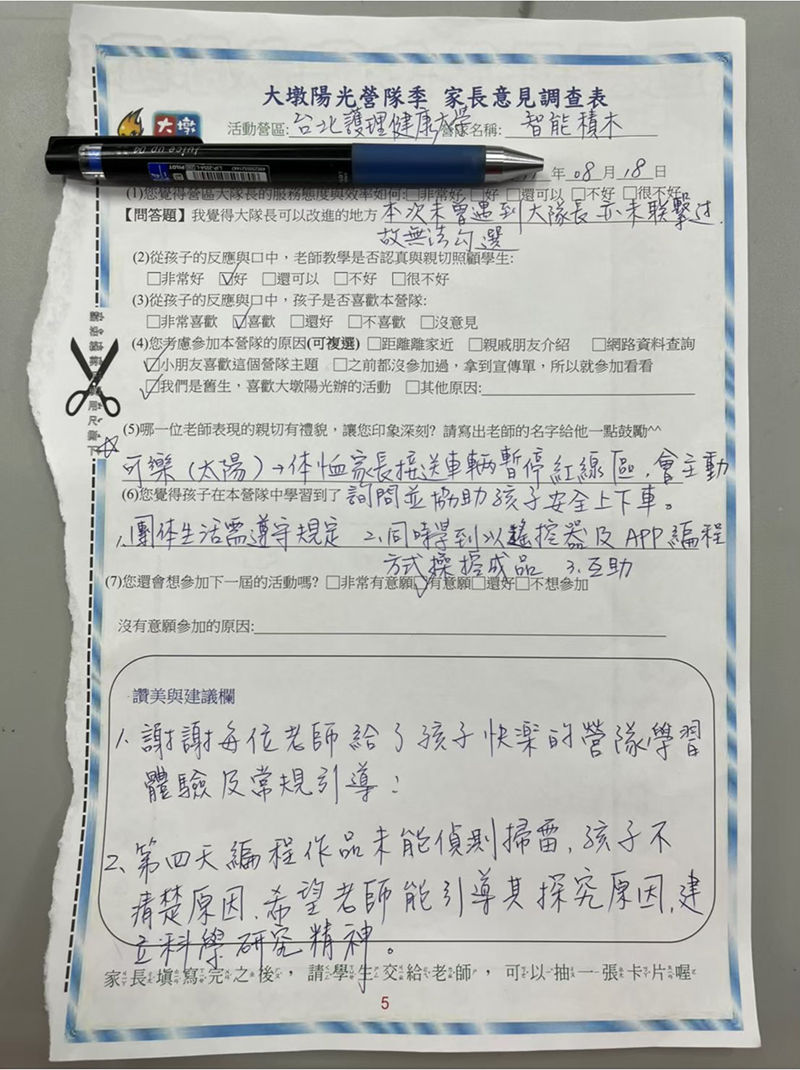 大墩陽光營隊季 家長意見調查表
大墩
活動營區:台北護理健康大學營隊名稱: 智能積木
年 08 月 18 日
(1)您覺得營區大隊長的服務態度與效率如何:□非常好 □好 □還可以 □不好 □很不好
【問答題】我覺得大隊長可以改進的地方 本次未曾遇到大隊長亦未聯繫過,
故無法勾選
(2)從孩子的反應與口中，老師教學是否認真與親切照顧學生:
□非常好 ☑好 □還可以 □不好 □很不好
(3)從孩子的反應與口中，孩子是否喜歡本營隊:
□非常喜歡 ☑喜歡 □還好 □不喜歡 □沒意見
(4)您考慮參加本營隊的原因(可複選) □距離離家近 □親戚朋友介紹 □網路資料查詢
☑小朋友喜歡這個營隊主題 □之前都沒參加過，拿到宣傳單，所以就參加看看
☑我們是舊生，喜歡大墩陽光辦的活動 □其他原因:
(5)哪一位老師表現的親切有禮貌，讓您印象深刻? 請寫出老師的名字給他一點鼓勵^^
☆可樂(太陽)→体恤家長接送車輛暫停紅線區,會主動
詢問並協助孩子安全上下車。
(6)您覺得孩子在本營隊中學習到了
1.團体生活需遵守規定 2.同時學到以遙控器及APP編程
方式操控成品 3.互助
(7)您還會想參加下一屆的活動嗎? □非常有意願☑有意願□還好□不想參加
沒有意願參加的原因:
讚美與建議欄
1.謝謝每位老師給了孩子快樂的營隊學習
體驗及常規引導;
2.第四天編程作品未能偵測掃雷,孩子不
清楚原因,希望老師能引導其探究原因,建
立科學研究精神。
家長填寫完之後，請學生交給老師，可以抽一張卡片喔
5